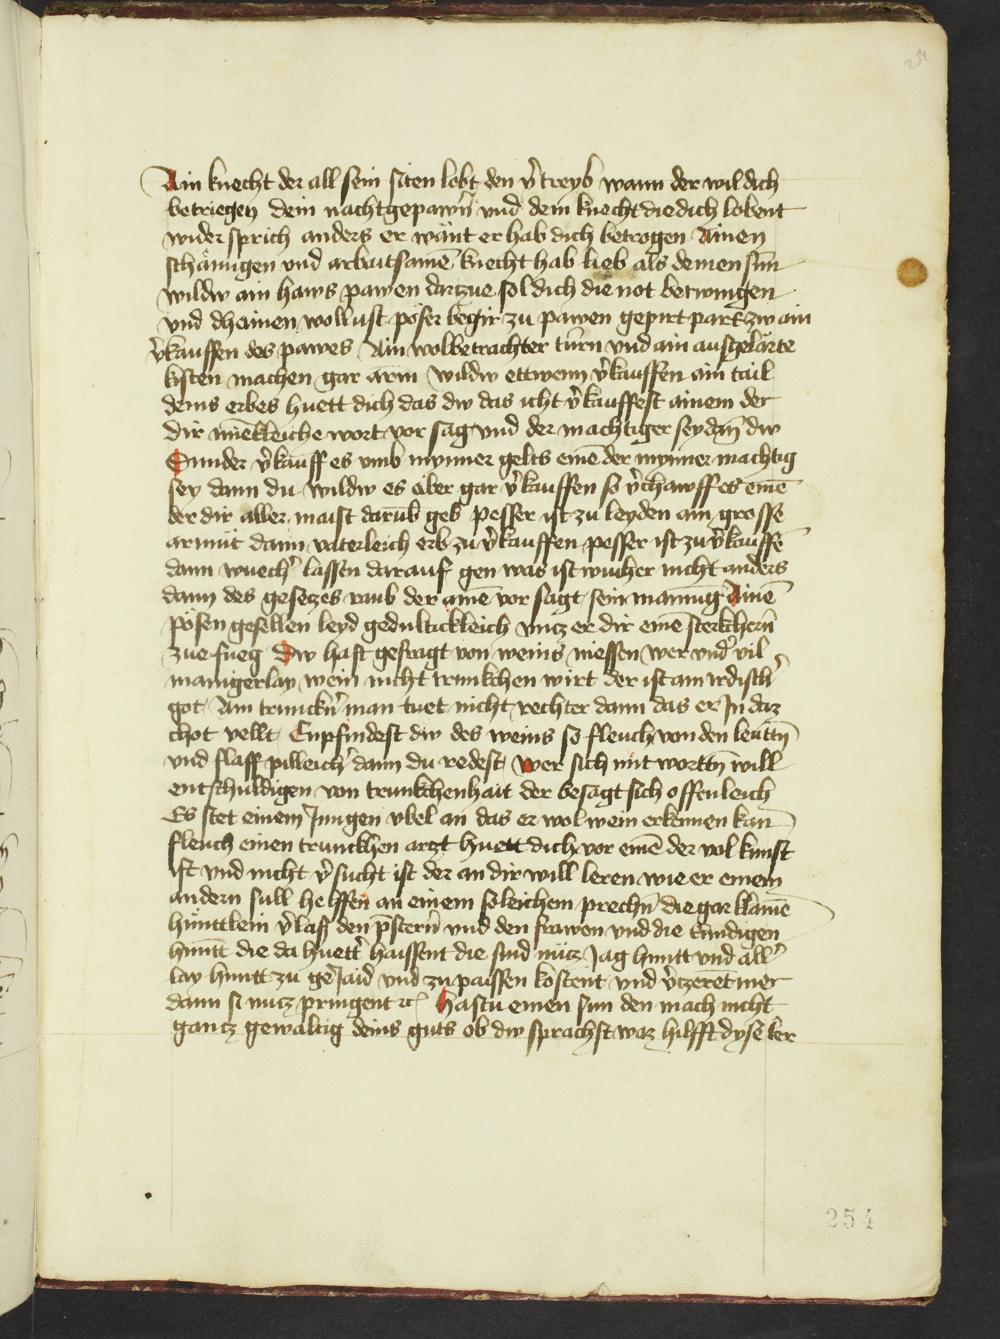 Ain knecht der all sein siten lobt den v̉treyb wann der wil dich
betriegen dein nachtgepawrn̄ vnd dein knecht die dich lobent
wider sprich anders er wänt er hab dich betrogen Ainen
schämigen vnd arbaitsamē knecht hab lieb als deinen sun
wildw ain haws pawen dartzue sol dich die not betwingen
vnd dhainen wollust poser begir zu pawen gepirt park zw ain
v̉kauffen des pawes Ain wolbetrachter turn vnd ain ausgelärte
kisten machen gar arm wildw ettwenn v̉kauffen ain tail
deins erbes huett dich das dw das icht v̉kauffest ainem der
dir mēkleiche wort vor sag vnd der machtiger sey dan̄ dw
Sunder v̉kauff es vmb mynner gelts einē der mynner machtig
sey dann du wildw es aber gar v̉kauffen so v̉chawff es einē
der dir aller maist darūb geb pesser ist zu leyden ain grosse
armüt dann vaterleich erb zu v̉kauffen pesser ist zu v̉kauffē
dann wuech̉ lassen darauf gen was ist wucher nicht anders
dann des gesetzes raub der ainē vor sagt sein mainūg Ainē
pösen gesellen leyd gedultickleich vntz er dir einē sterkchern̄
zue fueg dw hast gefragt von weins niessen wer vnd̉ vil
manigerlay wein nicht trunkchen wirt der ist ain irdisch̉
got Ain trunckn̉ man tuet nicht rechter dann das er In daz
chot vellt Enpfindest dw des weins so fleuch von den leuttn̄
vnd slaff pilleich̉ dann du redest wer sich mit wortn̄ will
entschuldigen von trunkchenhait der besagt sich offenleich
Es stet einem Jungen vbel an das er wol wein erkennen kan
fleuch einen trunckhen artzt huett dich vor einē der vol kunst
ist vnd nicht v̉sucht ist der an dir will leren wie er einem
andern sull helffen an einem soleichem prechn̄ die gar klainē
hünttlein v̉laß den p̄stern̄ vnd den frawen vnd die kundigen
hunt die da huett̉ haissent die sind nütz Jag hunt vnd all̉
lay huntt zu geJaid vnd zu paissen kostent vnd v̉tzerēt mer
dann si nutz pringent ꝛc hastu einen sun den mach nicht
gantz gewaltig deins guts ob dw sprachst waz hilfft dyse ler
254